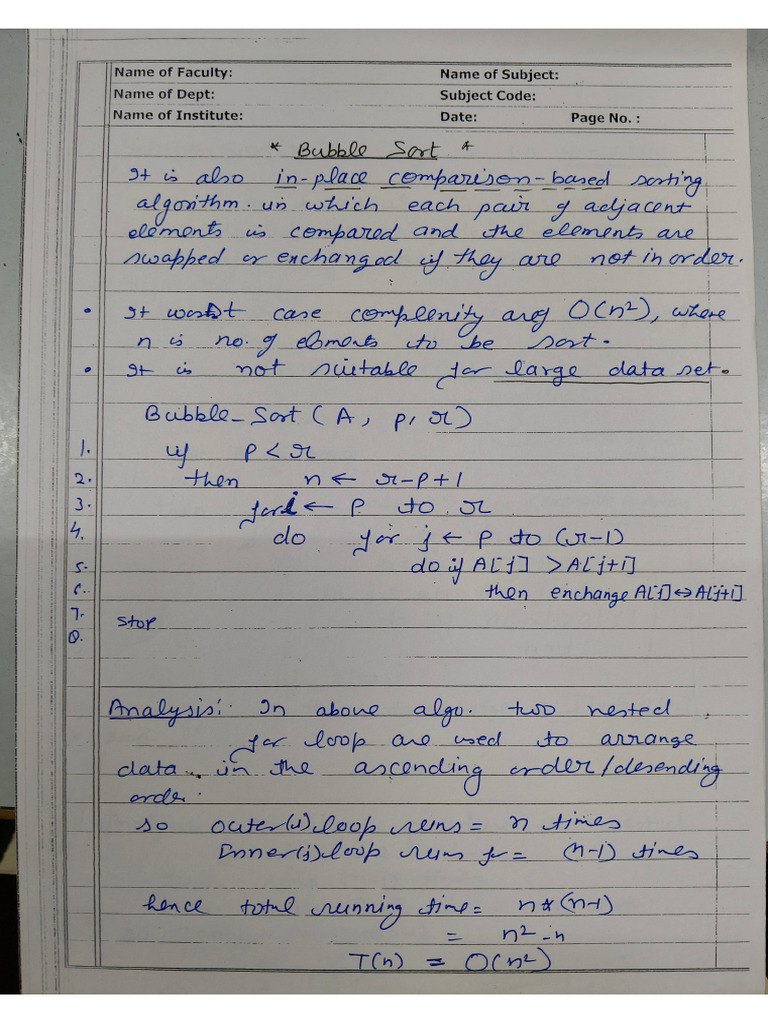 Name of Faculty: Name of Subject:
Name of Dept: Subject Code:
Name of Institute: Date: Page No. :
* Bubble Sort *
It is also in-place comparison-based sorting
algorithm. in which each pair of adjacent
elements is compared and the elements are
swapped or exchanged if they are not in order.
• It worst case complenity are O(n²), where
n is no. of elements to be sort.
• It is not suitable for large data set.
Bubble-Sort (A, p, r)
1. if p < r
2. then n ← r-p+1
3. for i ← p to r
4. do for j ← p to (r-1)
5. do if A[j] > A[j+1]
6. then enchange A[j] ↔ A[j+1]
7.
8. stop
Analysis: In above algo. two nested
for loop are used to arrange
data in the ascending order/desending
order.
so outer(i) loop runs = n times
Inner(j) loop runs for = (n-1) times
hence total running time = n*(n-1)
= n² - n
T(n) = O(n²)